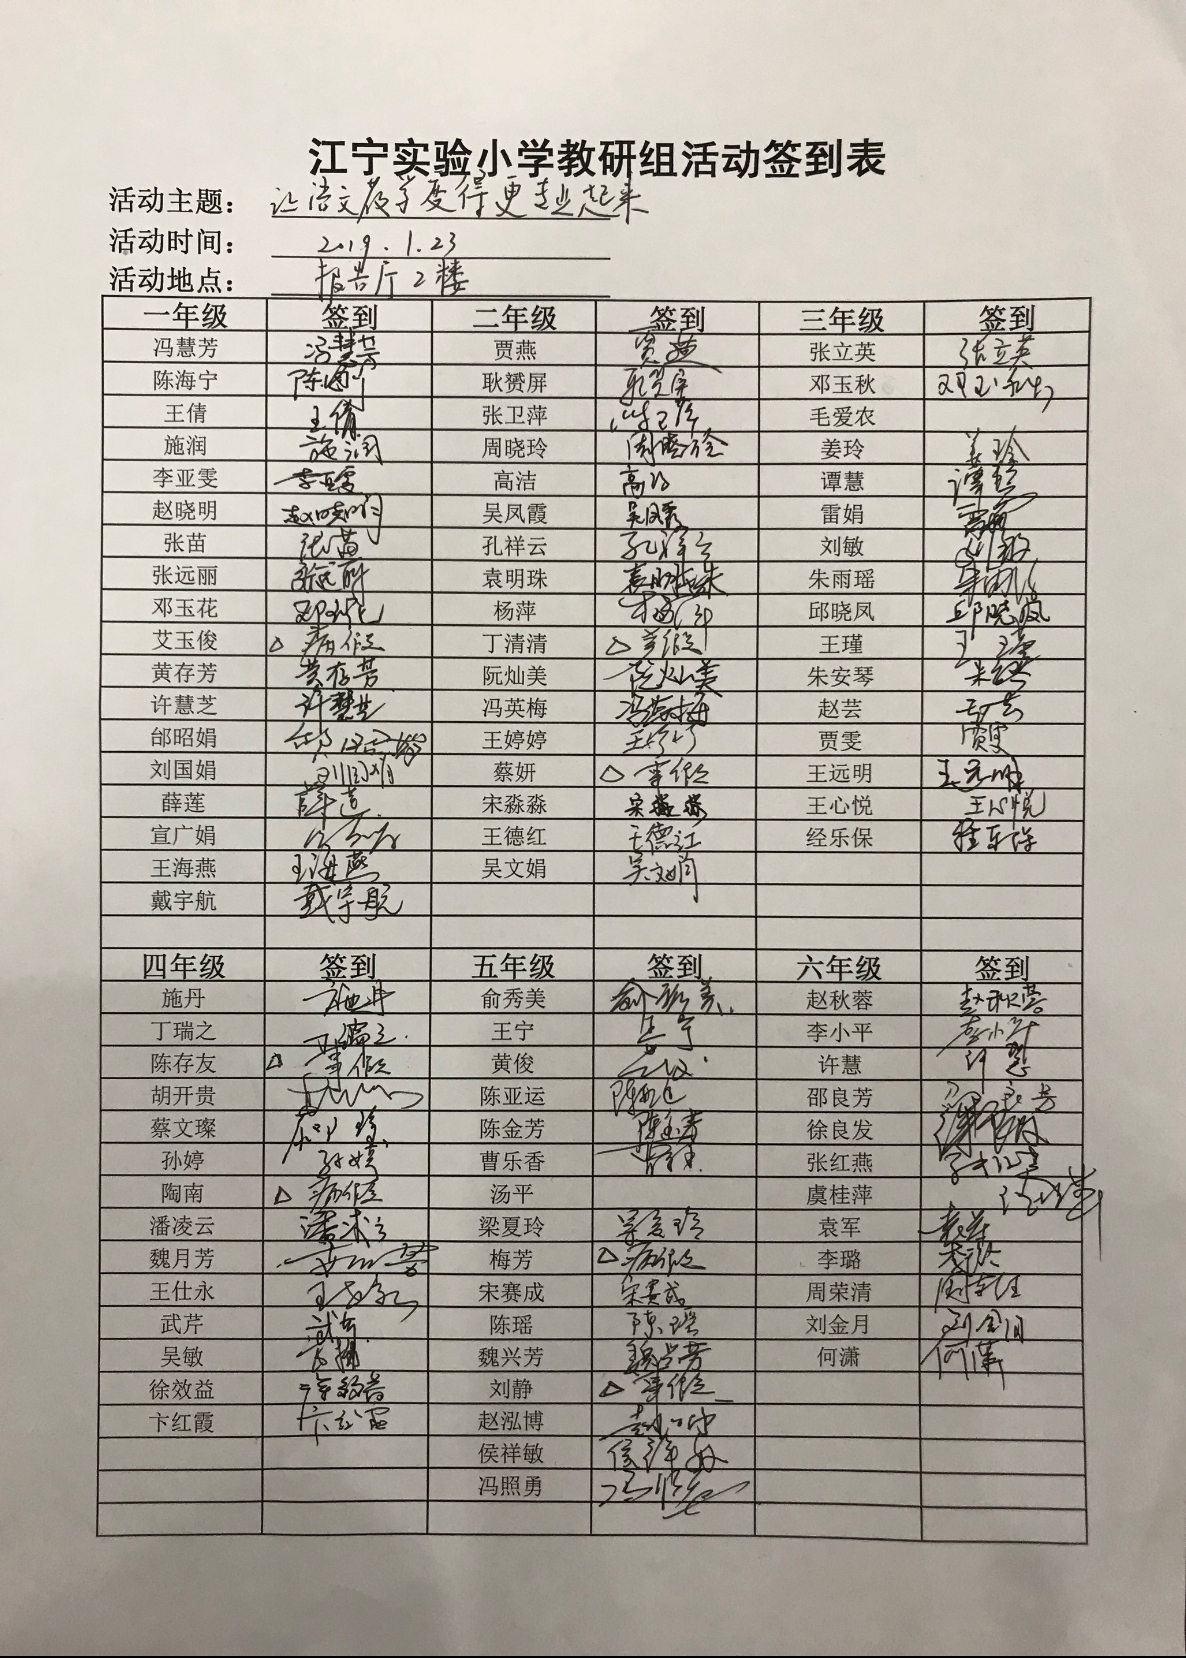 江宁实验小学教研组活动签到表
活动主题： 让语文教学变得更专业起来
活动时间： 2019.1.23
活动地点： 报告厅2楼
一年级 签到 二年级 签到 三年级 签到
冯慧芳 冯慧芳 贾燕 贾燕 张立英 张立英
陈海宁 陈海宁 耿赟屏 耿赟屏 邓玉秋 邓玉秋
王倩 王倩 张卫萍 张卫萍 毛爱农
施润 施润 周晓玲 周晓玲 姜玲 姜玲
李亚雯 李亚雯 高洁 高洁 谭慧 谭慧
赵晓明 赵晓明 吴凤霞 吴凤霞 雷娟 雷娟
张苗 张苗 孔祥云 孔祥云 刘敏 刘敏
张远丽 张远丽 袁明珠 袁明珠 朱雨瑶 朱雨瑶
邓玉花 邓玉花 杨萍 杨萍 邱晓凤 邱晓凤
艾玉俊 △ 病假 丁清清 △ 事假 王瑾 王瑾
黄存芳 黄存芳 阮灿美 阮灿美 朱安琴
许慧芝 许慧芝 冯英梅 冯英梅 赵芸
邰昭娟 邰昭娟 王婷婷 王婷婷 贾雯 贾雯
刘国娟 刘国娟 蔡妍 △ 事假 王远明 王远明
薛莲 薛莲 宋淼淼 宋淼淼 王心悦 王心悦
宣广娟 王德红 王德红 经乐保 经乐保
王海燕 王海燕 吴文娟 吴文娟
戴宇航 戴宇航
四年级 签到 五年级 签到 六年级 签到
施丹 施丹 俞秀美 俞秀美 赵秋蓉 赵秋蓉
丁瑞之 丁瑞之 王宁 王宁 李小平 李小平
陈存友 △ 事假 黄俊 许慧 许慧
胡开贵 陈亚运 陈亚运 邵良芳 邵良芳
蔡文璨 陈金芳 陈金芳 徐良发 徐良发
孙婷 孙婷 曹乐香 张红燕
陶南 △ 病假 汤平 虞桂萍
潘凌云 潘凌云 梁夏玲 梁夏玲 袁军 袁军
魏月芳 梅芳 △ 病假 李璐
王仕永 王仕永 宋赛成 宋赛成 周荣清
武芹 武芹 陈瑶 陈瑶 刘金月 刘金月
吴敏 吴敏 魏兴芳 魏兴芳 何潇 何潇
徐效益 徐效益 刘静 △ 事假
卞红霞 卞红霞 赵泓博
侯祥敏 侯祥敏
冯照勇 冯照勇